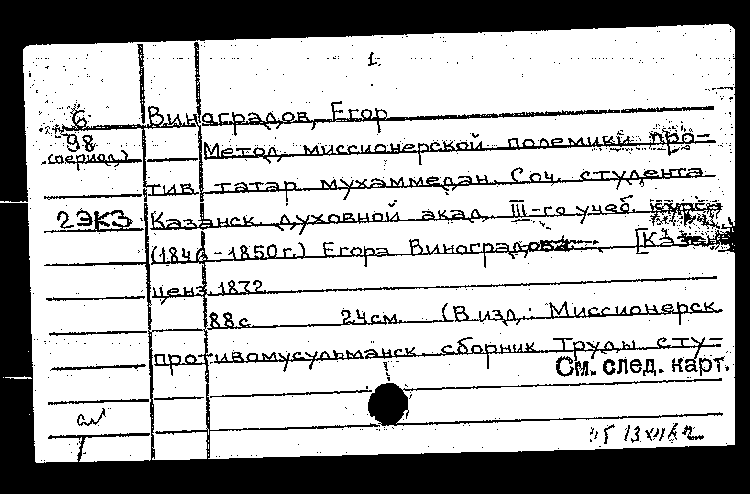 1.
6 Виноградов, Егор
98 Метод миссионерской полемики про-
(период.)
тив татар мухаммедан. Соч. студента
2экз Казанск. духовной акад. III-го учеб. курса
(1846-1850г.) Егора Виноградова. [Казань
ценз. 1872
88с. 24см. (В изд.: Миссионерск.
противомусульманск. сборник Труды сту-
См. след. карт.